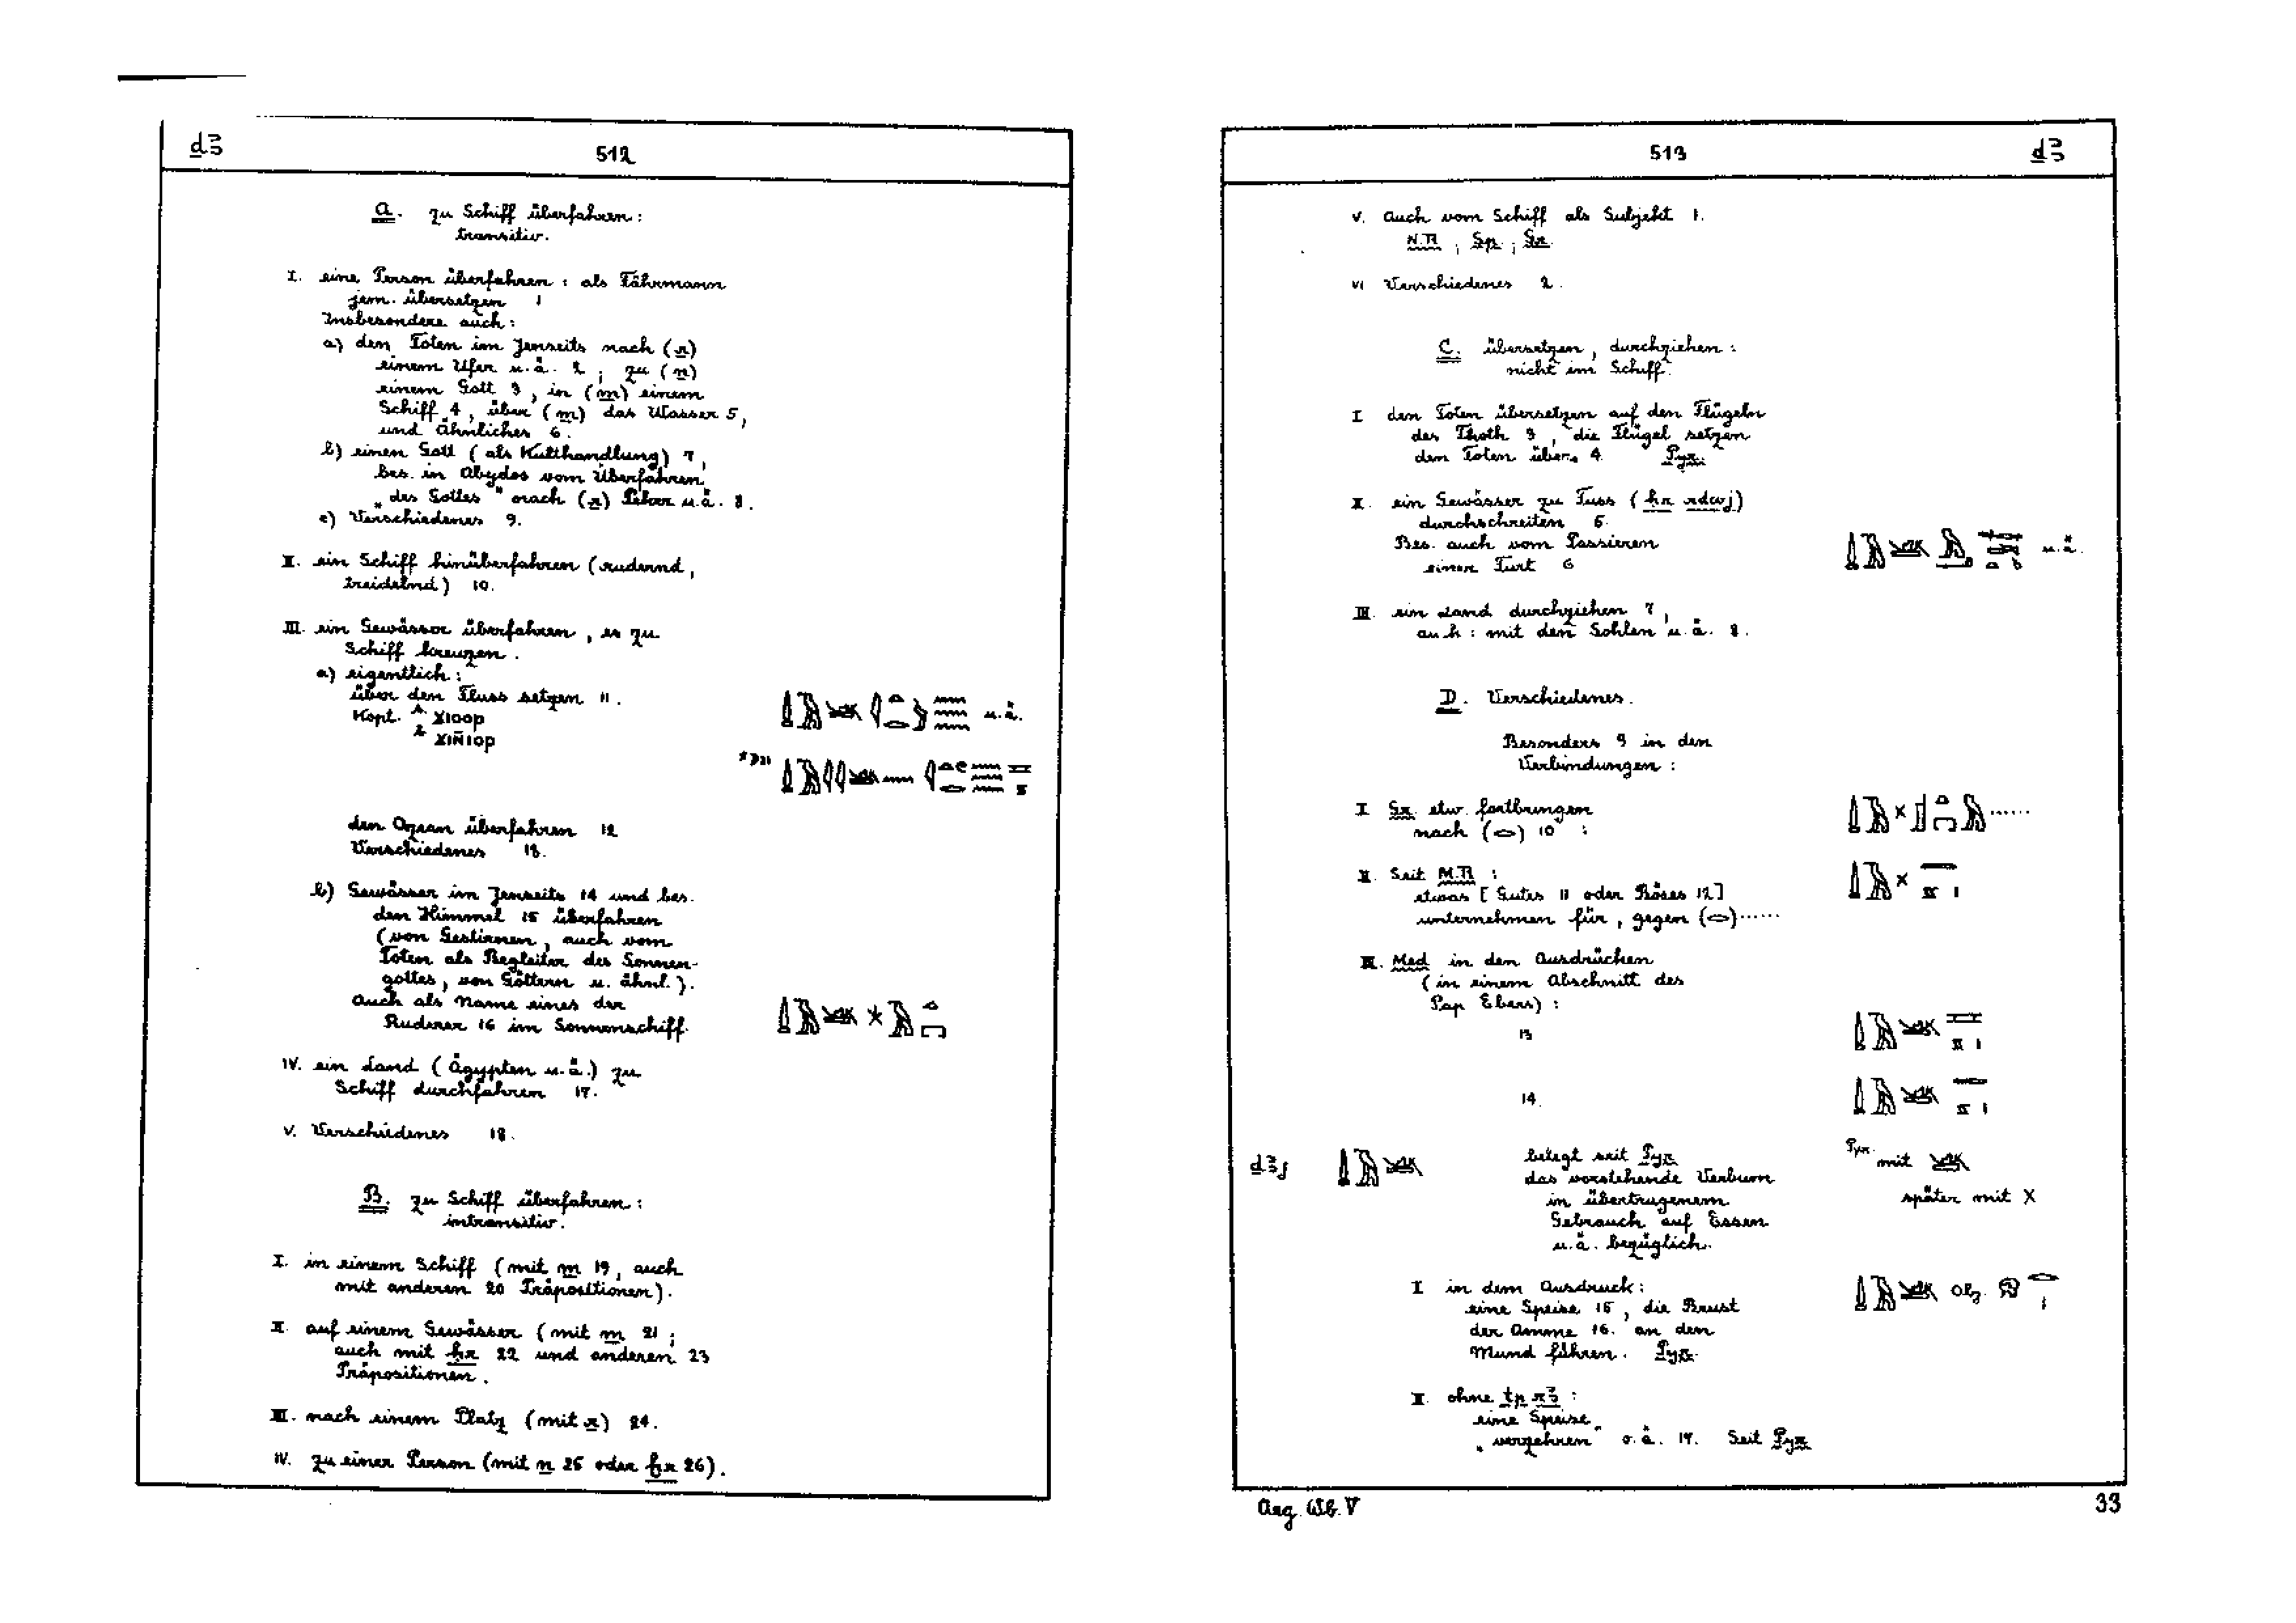 ḏꜣ
512
A. zu Schiff überfahren:
transitiv.
I. eine Person überfahren: als Fährmann
jem. übersetzen 1
Insbesondere auch:
a) den Toten im Jenseits nach (r)
einem Ufer u.ä. 2, zu (n)
einem Gott 3, in (m) einem
Schiff 4, über (m) das Wasser 5,
und Ähnliches 6.
b) einen Gott (als Kulthandlung) 7,
bes. in Abydos vom Überfahren
„des Gottes" nach (r) Peker u.ä. 8.
c) Verschiedenes 9.
II. ein Schiff hinüberfahren (rudernd,
treidelnd) 10.
III. ein Gewässer überfahren, es zu
Schiff kreuzen.
a) eigentlich:
über den Fluss setzen 11.
u.ä.
Kopt. ϫⲓⲟⲟⲣ
ϫⲓⲛ̄ⲓⲟⲣ
*D21
den Ozean überfahren 12
Verschiedenes 13.
b) Gewässer im Jenseits 14 und bes.
den Himmel 15 überfahren
(von Gestirnen, auch vom
Toten als Begleiter des Sonnen-
gottes, von Göttern u. ähnl.).
Auch als Name eines der
Ruderer 16 im Sonnenschiff.
IV. ein Land (Ägypten u.ä.) zu
Schiff durchfahren 17.
V. Verschiedenes 18.
B. zu Schiff überfahren:
intransitiv.
I. in einem Schiff (mit m 19, auch
mit anderen 20 Präpositionen).
II. auf einem Gewässer (mit m 21;
auch mit ḥr 22 und anderen 23
Präpositionen.
III. nach einem Platz (mit r) 24.
IV. zu einer Person (mit n 25 oder ẖr 26).
513
ḏꜣ
V. Auch vom Schiff als Subjekt 1.
N.R.; Sp.; Gr.
VI Verschiedenes 2.
C. übersetzen, durchziehen:
nicht im Schiff.
I den Toten übersetzen auf den Flügeln
des Thoth 3, die Flügel setzen
den Toten über. 4. Pyr.
II. ein Gewässer zu Fuss (ḥr rdwj)
durchschreiten 5.
Bes. auch vom Passieren
einer Furt 6
u.ä.
III ein Land durchziehen 7,
auch: mit den Sohlen u.ä. 8.
D. Verschiedenes.
Besonders 9 in den
Verbindungen:
I Gr. etw. fortbringen
nach (𓂋) 10 :
II. Seit M.R. :
etwas [Gutes 11 oder Böses 12]
unternehmen für, gegen (𓂋)......
III. Med in den Ausdrücken
(in einem Abschnitt des
Pap Ebers):
13
14.
ḏꜣj
belegt seit Pyr.
das vorstehende Verbum
in übertragenem
Gebrauch auf Essen
u.ä. bezüglich.
Pyr. mit
später mit X
I in dem Ausdruck:
eine Speise 15, die Brust
der Amme 16. an den
Mund führen. Pyr.
II. ohne tp rꜣ :
eine Speise
„verzehren" o.ä. 17. Seit Pyr.
Aeg. Wb. V
33